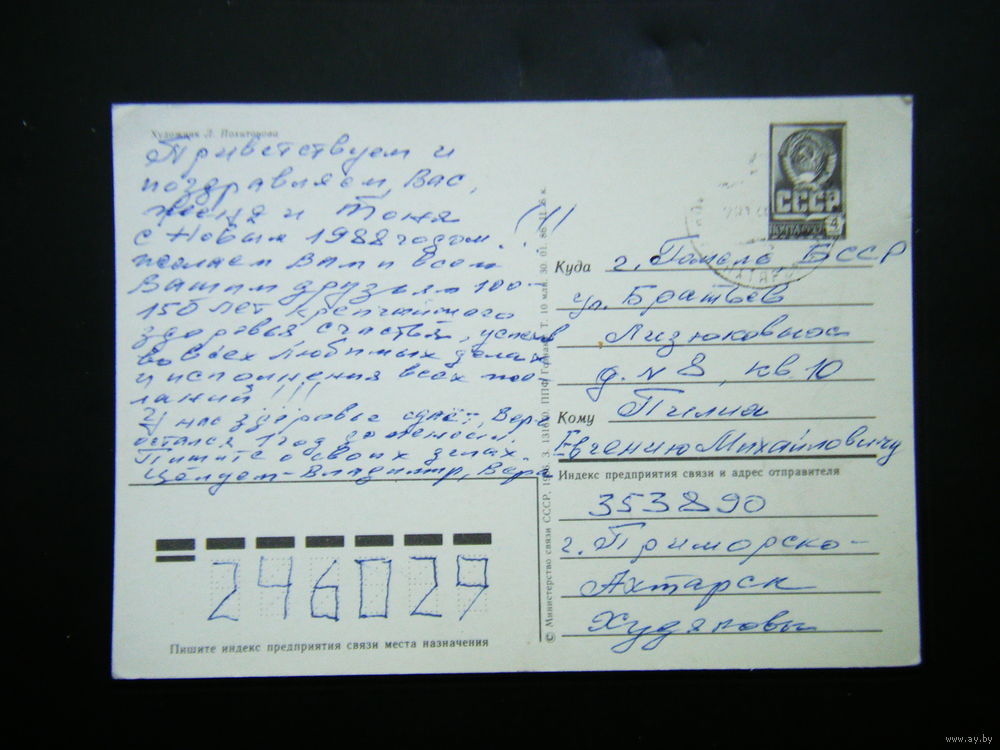 Художник Л. Похитонова
Приветствуем и
поздравляем, Вас,
и Тоня
с Новым 1988 годом. (1)
желаем Вам и всем
Вашим друзьям 100-
150 лет крепчайшего
здоровья счастья, успехов
во всех любимых делах
и исполнения всех же-
ланий !!!
У нас здоровье сдаёт, Вере
остался 1 год до пенсии.
Пишите о своих делах.
Целуем - Владимир, Вера
СССР
ПОЧТА
4
Куда г. Гомель, БССР
ул. Братьев
Лизюковых
д. N 8, кв 10
Кому Пилиа
Евгению Михайловичу
Индекс предприятия связи и адрес отправителя
353890
г. Приморско-
Ахтарск
Худяковы
246027
Пишите индекс предприятия связи места назначения
© Министерство связи СССР, З. ППФ Гознака. Т. 10 млн. 30. 01. 4 к.
www.ay.by